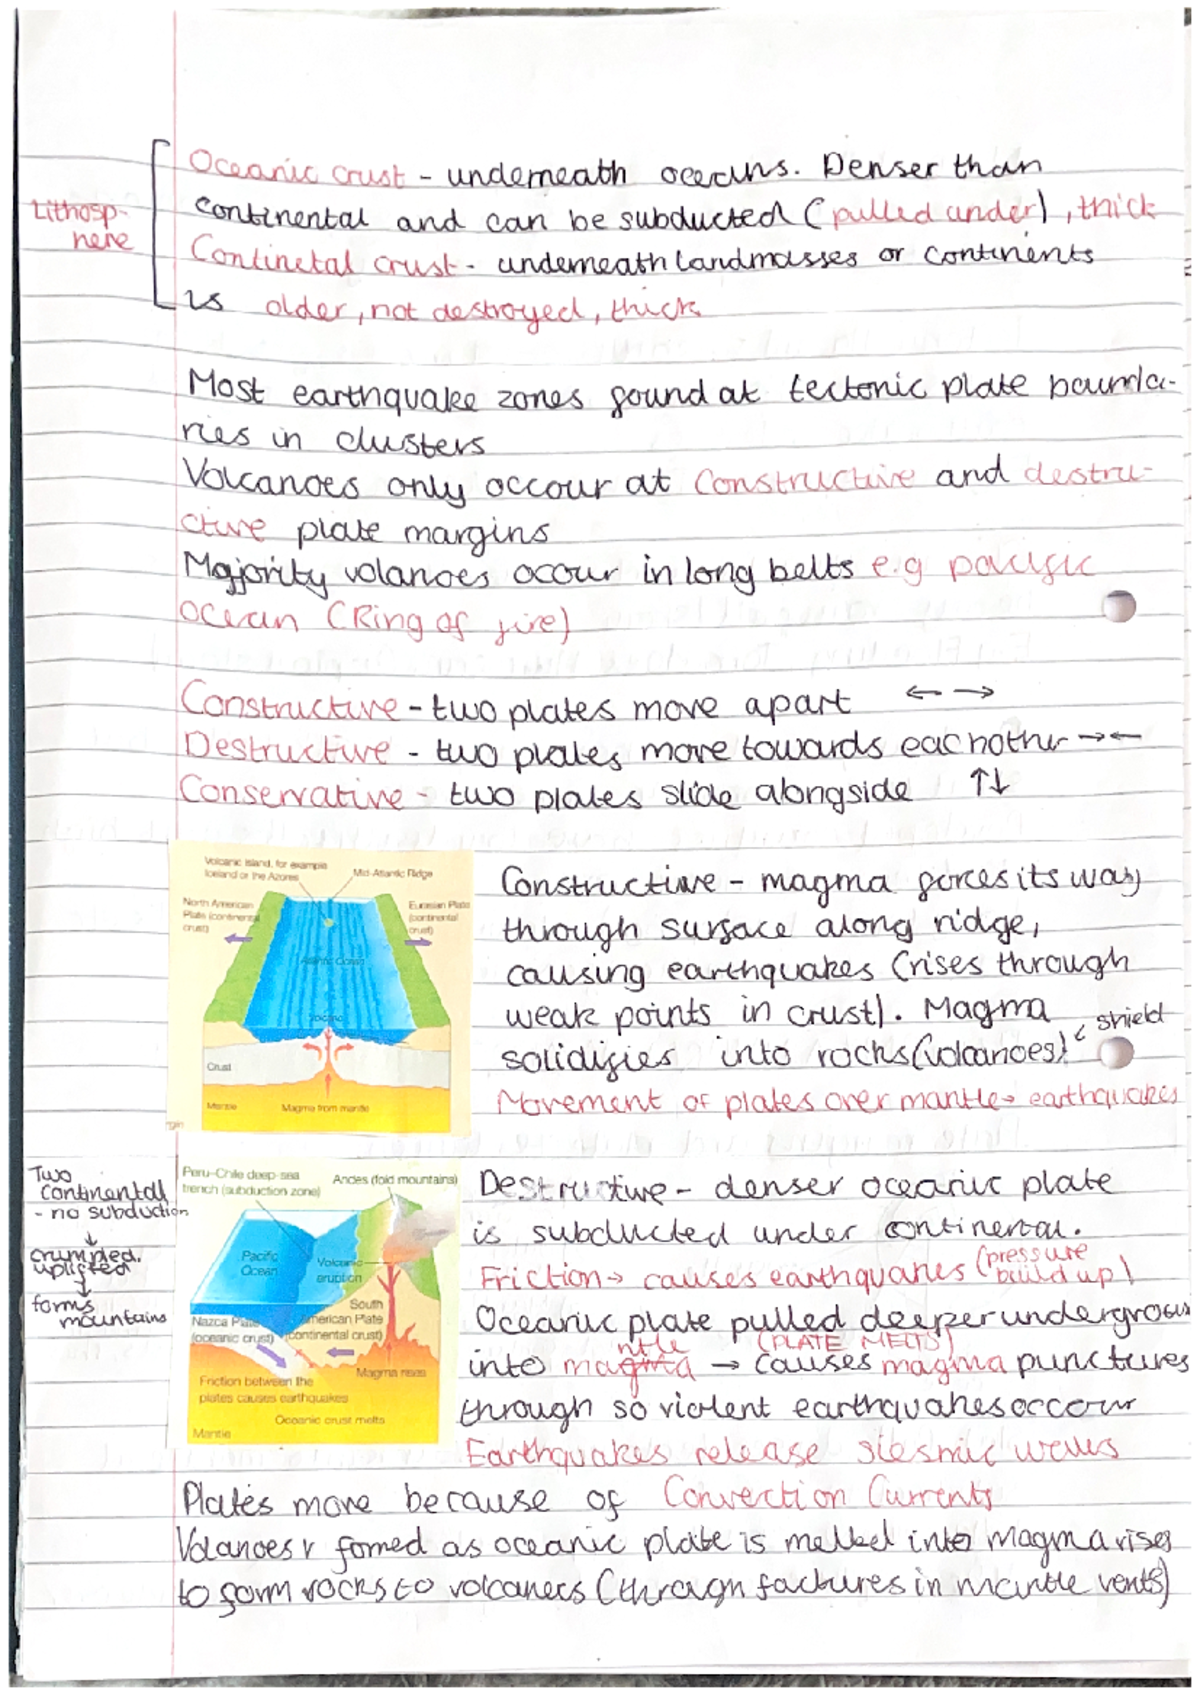 Lithosp-
here
Oceanic crust - underneath oceans. Denser than
continental and can be subducted (pulled under), thick
Continetal crust - underneath landmasses or continents
is older, not destroyed, thick
Most earthquake zones found at tectonic plate bounda-
ries in clusters
Volcanoes only occour at Constructive and destru-
ctive plate margins
Majority volanoes occur in long belts e.g pacific
ocean (Ring of fire)
Constructive - two plates move apart ← →
Destructive - two plates move towards eachother →←
Conservative - two plates slide alongside ↑↓
Volcanic Island, for example
Iceland or the Azores
Mid-Atlantic Ridge
North American
Plate (continental
crust)
Eurasian Plate
(continental
crust)
Atlantic Ocean
Volcano
Crust
Mantle
Magma from mantle
Constructive - magma forces its way
through surface along ridge,
causing earthquakes (rises through
weak points in crust). Magma
solidifies into rocks (volcanoes)
shield
Movement of plates over mantle → earthquakes
Two
continental
- no subduction
↓
crumpled.
uplifted
↓
forms
mountains
Peru-Chile deep-sea
trench (subduction zone)
Andes (fold mountains)
Pacific
Ocean
Volcanic
eruption
South
American Plate
(continental crust)
Nazca Plate
(oceanic crust)
Magma rises
Friction between the
plates causes earthquakes
Oceanic crust melts
Mantle
Destructive - denser oceanic plate
is subducted under continental.
Friction → causes earthquakes (pressure
build up)
Oceanic plate pulled deeper undergrou
into mantle → (PLATE MELTS) causes magma punctures
through so violent earthquakes occour
Earthquakes release siesmic waves
Plates move because of Convection Currents
Volanoes r formed as oceanic plate is melted into magma rises
to form rocks to volcanoes (through factures in mantle vents)